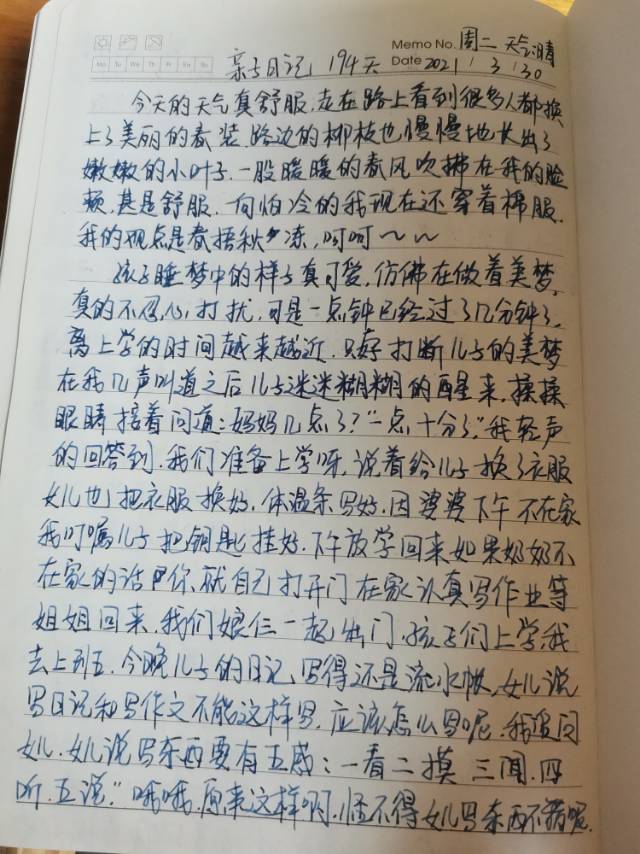 Memo No. 周二 天气晴
Mo Tu We Th Fr Sa Su
亲子日记 194天 Date 2021 / 3 / 30
今天的天气真舒服，走在路上看到很多人都换
上了美丽的春装，路边的柳枝也慢慢地长出了
嫩嫩的小叶子，一股暖暖的春风吹拂在我的脸
颊，甚是舒服，向怕冷的我现在还穿着棉服，
我的观点是春捂秋冻，呵呵~~
孩子睡梦中的样子真可爱，仿佛在做着美梦，
真的不忍心打扰，可是一点钟已经过了几分钟了，
离上学的时间越来越近，只好打断儿子的美梦
在我几声叫道之后儿子迷迷糊糊的醒来，揉揉
眼睛接着问道：妈妈几点了？"一点十分了"我轻声
的回答到，我们准备上学呀，说着给儿子换了衣服
女儿也把衣服换好，体温条写好，因婆婆下午不在家
我叮嘱儿子把钥匙挂好，下午放学回来如果奶奶不
在家的话你就自己打开门在家认真写作业等
姐姐回来，我们娘仨一起出门，孩子们上学，我
去上班，今晚儿子的日记，写得还是流水帐，女儿说
写日记和写作文不能这样写，应该怎么写呢，我追问
女儿，女儿说写东西要有五感：一看二摸三闻，四
听，五说。"哦哦，原来这样啊，怪不得女儿写东西不错呢，